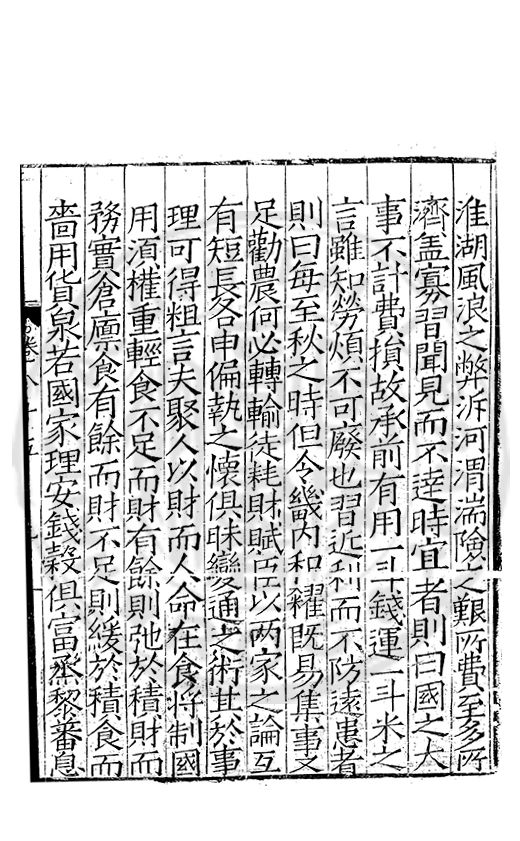 淮湖風浪之弊泝河渭湍險之艱所費至多所
濟盖寡習聞見而不達時宜者則曰國之大
事不計費損故承前有用一斗錢運一斗米之
言雖知勞煩不可廢也習近利而不防遠患者
則曰每至秋之時但令畿内和糴既易集事又
足勸農何必轉輸徒耗財賦臣以两家之論互
有短長各申偏執之懷俱昧變通之術其於事
理可得粗言夫聚人以財而人命在食将制國
用湏權重輕食不足而財有餘則弛於積財而
務實倉廪食有餘而財不足則緩於積食而
嗇用貨泉若國家理安錢穀俱富烝黎蕃息
卷八十五